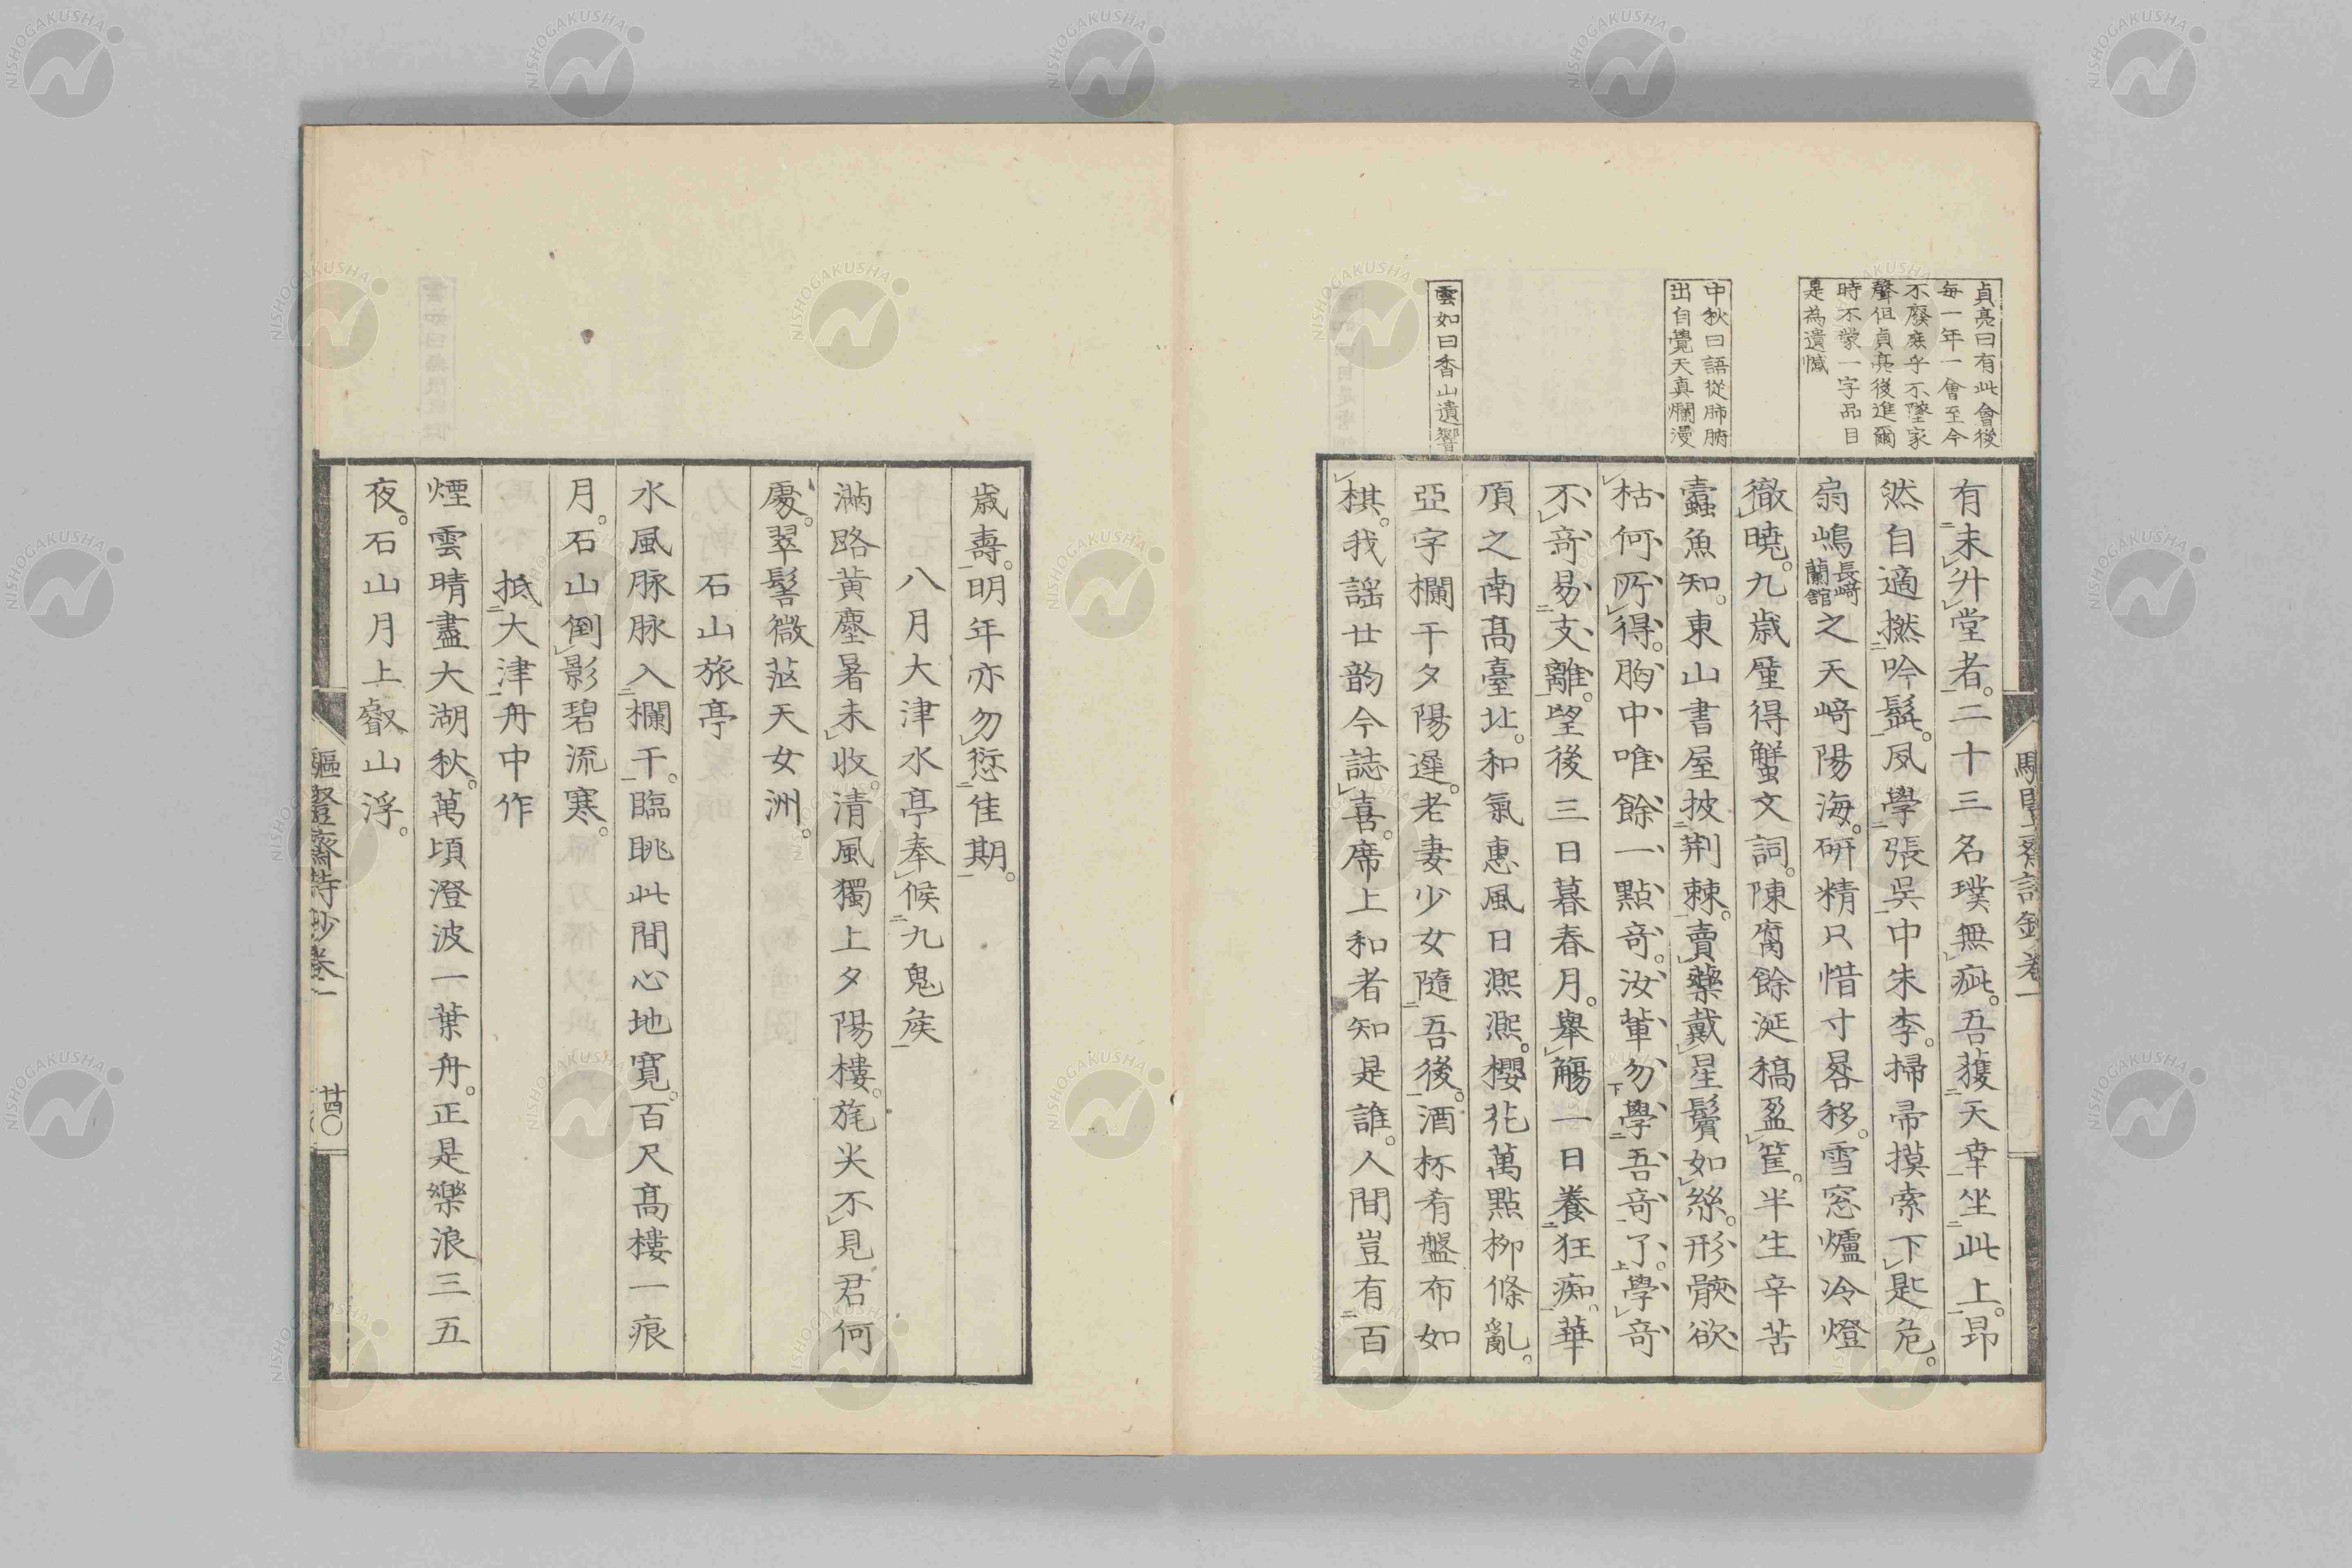 貞亮曰有此會後
每一年一會至今
不廢庶乎不墜家
聲但貞亮後進爾
時不蒙一字品目
是為遺憾
中秋曰語從肺腑
出自覺天真爛漫
雲如曰香山遺響
有未升堂者二十三名璞無疵吾獲天幸坐此上昂
然自適撚吟髭夙學張吳中朱李掃帚摸索下匙危
扇嶋長崎蘭館之天﨑陽海研精只惜寸晷移雪窓爐冷燈
徹曉九歲廑得蟹文詞陳腐餘涎稿盈筐半生辛苦
蠹魚知東山書屋披荆棘賣藥戴星鬢如絲形骸欲
枯何所得胸中唯餘一點奇汝輩勿學吾奇了學奇
不奇易支離望後三日暮春月舉觴一日養狂痴華
頂之南髙臺址和氣惠風日凞凞櫻花萬點栁條亂
亞字欄干夕陽遲老妻少女隨吾後酒杯肴盤布如
棋我謡廿韵今誌喜席上和者知是誰人間豈有百
歲壽明年亦勿愆佳期
八月大津水亭奉候九鬼侯
滿路黄塵暑未收清風獨上夕陽樓旄尖不見君何
處翠髻微茫天女洲
石山旅亭
水風脉脉入欄干臨眺此間心地寬百尺髙樓一痕
月石山倒影碧流寒
抵大津舟中作
煙雲晴盡大湖秋萬頃澄波一葉舟正是樂浪三五
夜石山月上叡山浮
卷一
廿四
NISHOGAKUSHA